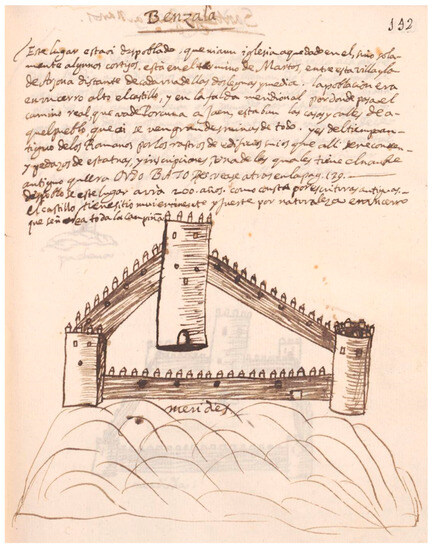 Benzala
132
Este lugar esta oi despoblado, que ni aun iglesia a quedado en el sino sola
mente algunos cortijos, está en el termino de Martos, entre esta villa y la
de Arjona distante de cada una dellas dos leguas y media. la poblacion era
en un cerro alto el castillo, y en la falda meridional por donde pasa el
camino real que va de Porcuna a Jaen, estaban las casas y calles de a
quel pueblo que oi se ven grandes ruinas de todo. y es del tiempo an
tiguo de los Romanos por los rastros de edificios suios que alli se ven con
y pedaços de estatuas, y inscripciones, y una de las quales tiene el nombre
antiguo que era OBO BATO pag. 139.
despoblose este lugar avrá 200 años, como consta por escrituras antiguas.
el castillo tiene sitio mui eminente y fuerte por naturaleza en un cerro
que señorea toda la campiña
merides